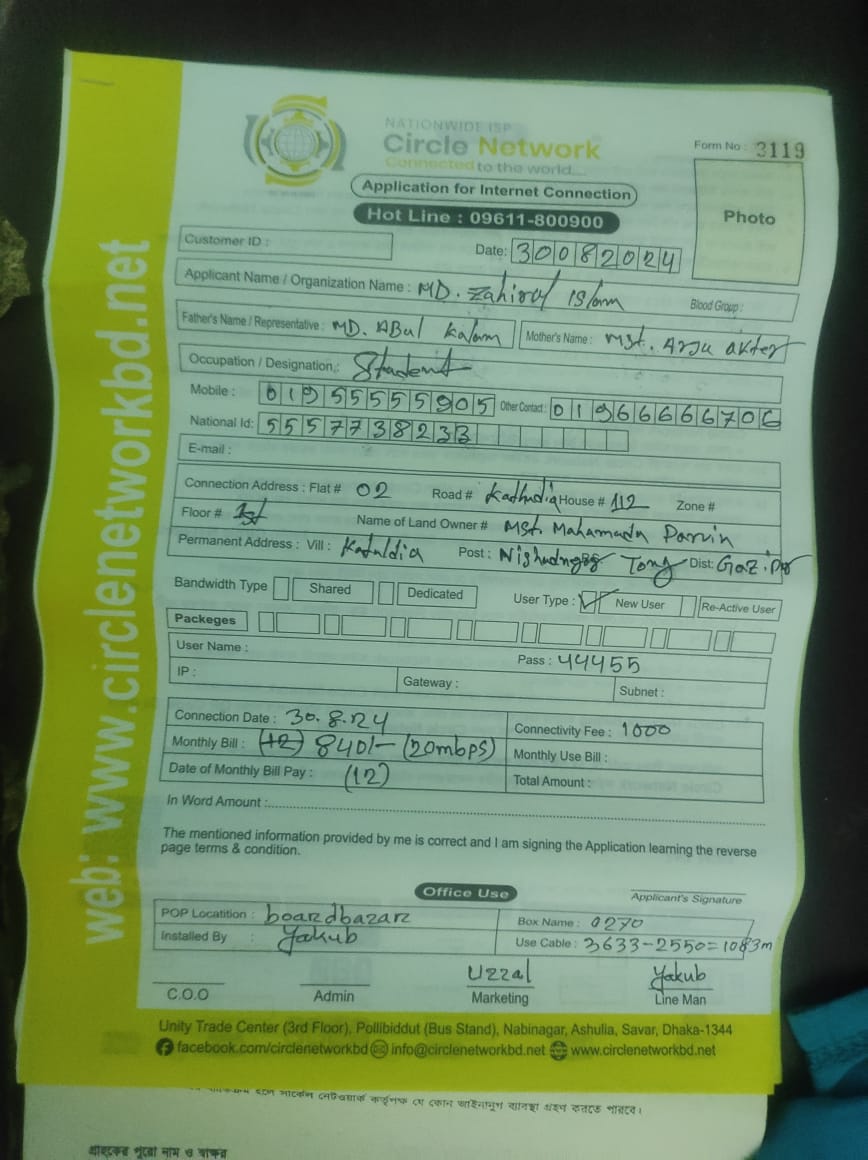 NATIONWIDE ISP
Circle Network
Connected to the world...
Form No : 3119
Application for Internet Connection
Hot Line : 09611-800900
Photo
Customer ID :
Date: 30082024
Applicant Name / Organization Name : MD. Zahirul Islam Blood Group :
Father's Name / Representative : MD. ABul Kalam Mother's Name : Mst. Arju akter
Occupation / Designation : Student
Mobile : 01955555905 Other Contact : 01966666706
National Id: 5557738233
E-mail :
Connection Address : Flat # 02 Road # Kathudia House # 112 Zone #
Floor # 1st Name of Land Owner # Mst. Mahamuda Parvin
Permanent Address : Vill : Post : Dist:
Bandwidth Type Shared Dedicated User Type : New User Re-Active User
Packeges
User Name : Pass : 44455
IP : Gateway : Subnet :
Connection Date : 30.8.24 Connectivity Fee : 1000
Monthly Bill : (12) 840/- (20mbps) Monthly Use Bill :
Date of Monthly Bill Pay : (12) Total Amount :
In Word Amount :
The mentioned information provided by me is correct and I am signing the Application learning the reverse
page terms & condition.
Office Use
Applicant's Signature
POP Locatition : boardbazar Box Name : 0270
Installed By : Yakub Use Cable : 3633-2550=1083m
Uzzal Yakub
C.O.O Admin Marketing Line Man
Unity Trade Center (3rd Floor), Pollibiddut (Bus Stand), Nabinagar, Ashulia, Savar, Dhaka-1344
facebook.com/circlenetworkbd info@circlenetworkbd.net www.circlenetworkbd.net
web: www.circlenetworkbd.net
হলে সার্কেল নেটওয়ার্ক কর্তৃপক্ষ যে কোন আইনানুগ ব্যবস্থা গ্রহণ করতে পারবে।
গ্রাহকের পুরো নাম ও স্বাক্ষর